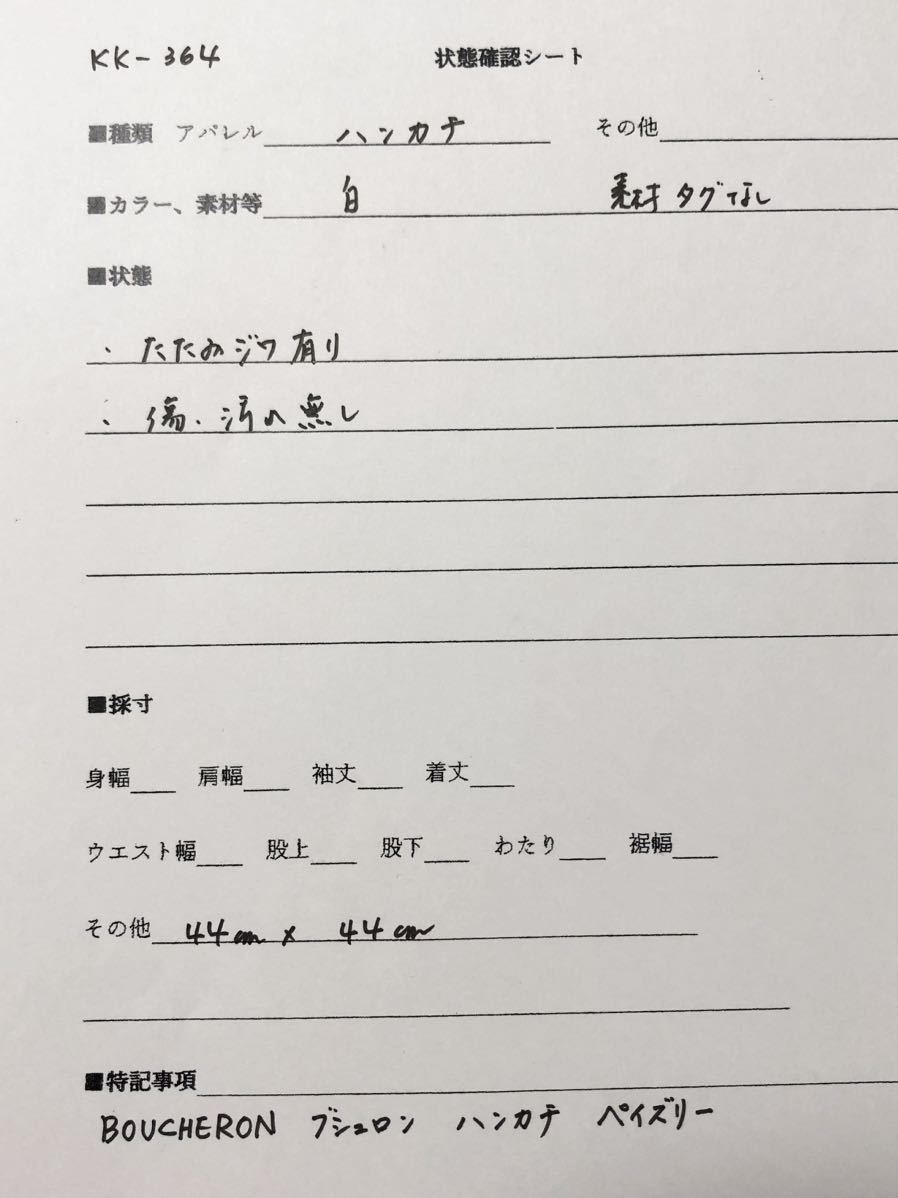 KK-364 状態確認シート
■種類 アパレル ハンカチ その他
■カラー、素材等 白 素材タグなし
■状態
・たたみジワ有り
・傷、汚れ無し
■採寸
身幅 肩幅 袖丈 着丈
ウエスト幅 股上 股下 わたり 裾幅
その他 44cm x 44cm
■特記事項
BOUCHERON ブシュロン ハンカチ ペイズリー